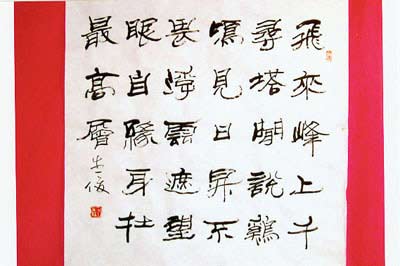 飛來峰上千
尋塔聞說鷄
鳴見日昇不
畏浮雲遮望
眼自緣身在
最高層